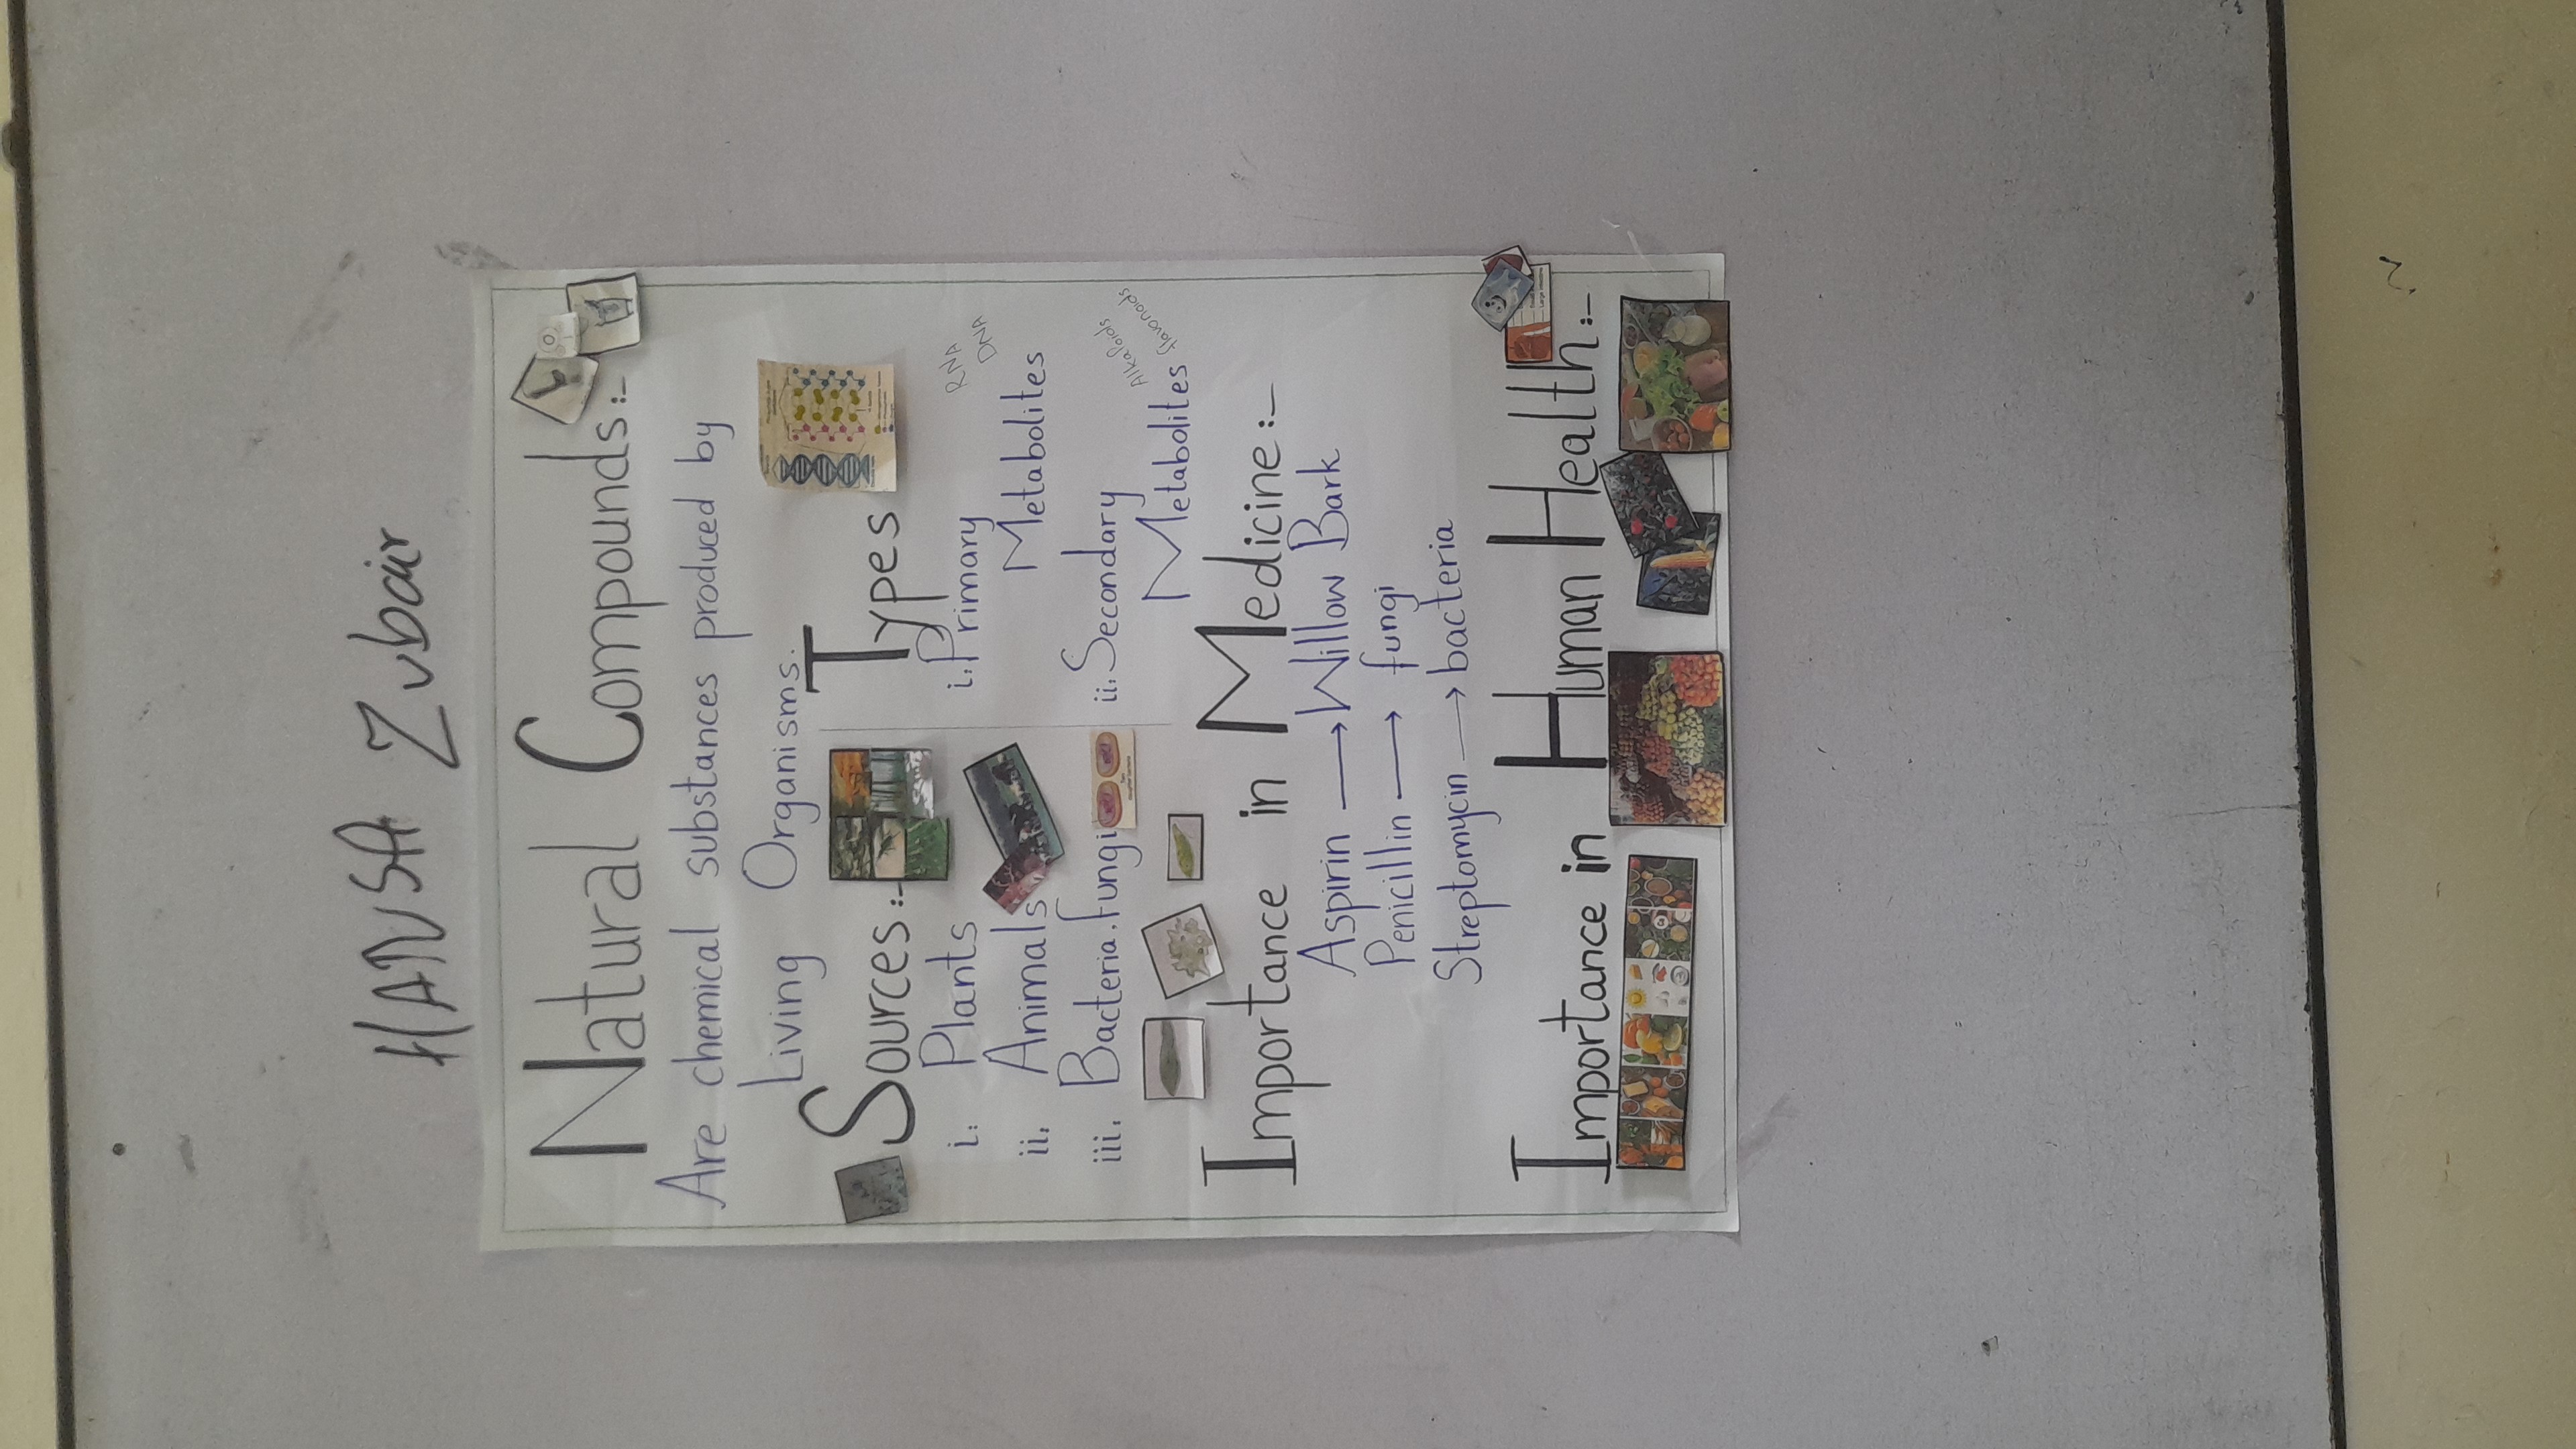 HANSA Zubair
Natural Compounds:-
Are chemical substances produced by
Living Organisms.
Sources:-
i. Plants
ii. Animals
iii. Bacteria, fungi
Types
i. Primary
Metabolites
RNA
DNA
ii. Secondary
Metabolites
Alkaloids
flavonoids
Importance in Medicine:-
Aspirin → Willow Bark
Penicillin → fungi
Streptomycin → bacteria
Importance in Human Health:-